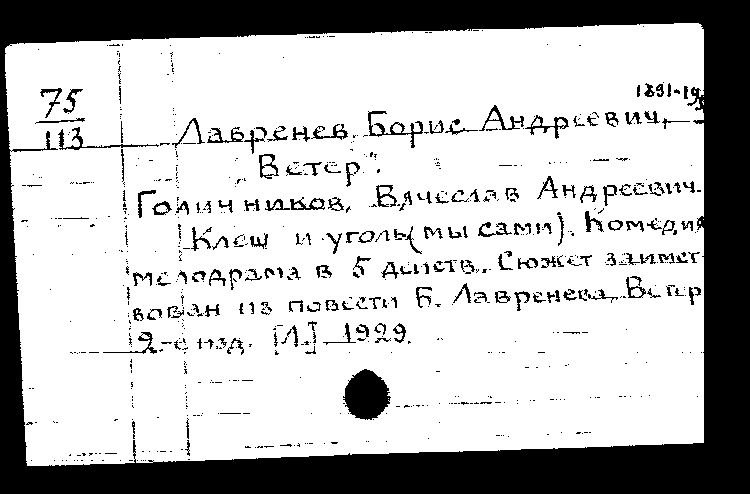 75
113
1891-19
Лавренев, Борис Андреевич,
„Ветер".
Голичников, Вячеслав Андреевич.
Клещ и уголь (мы сами). Комедия
мелодрама в 5 действ. Сюжет заимст-
вован из повести Б. Лавренева, Ветер
2-е изд. [Л.] 1929.